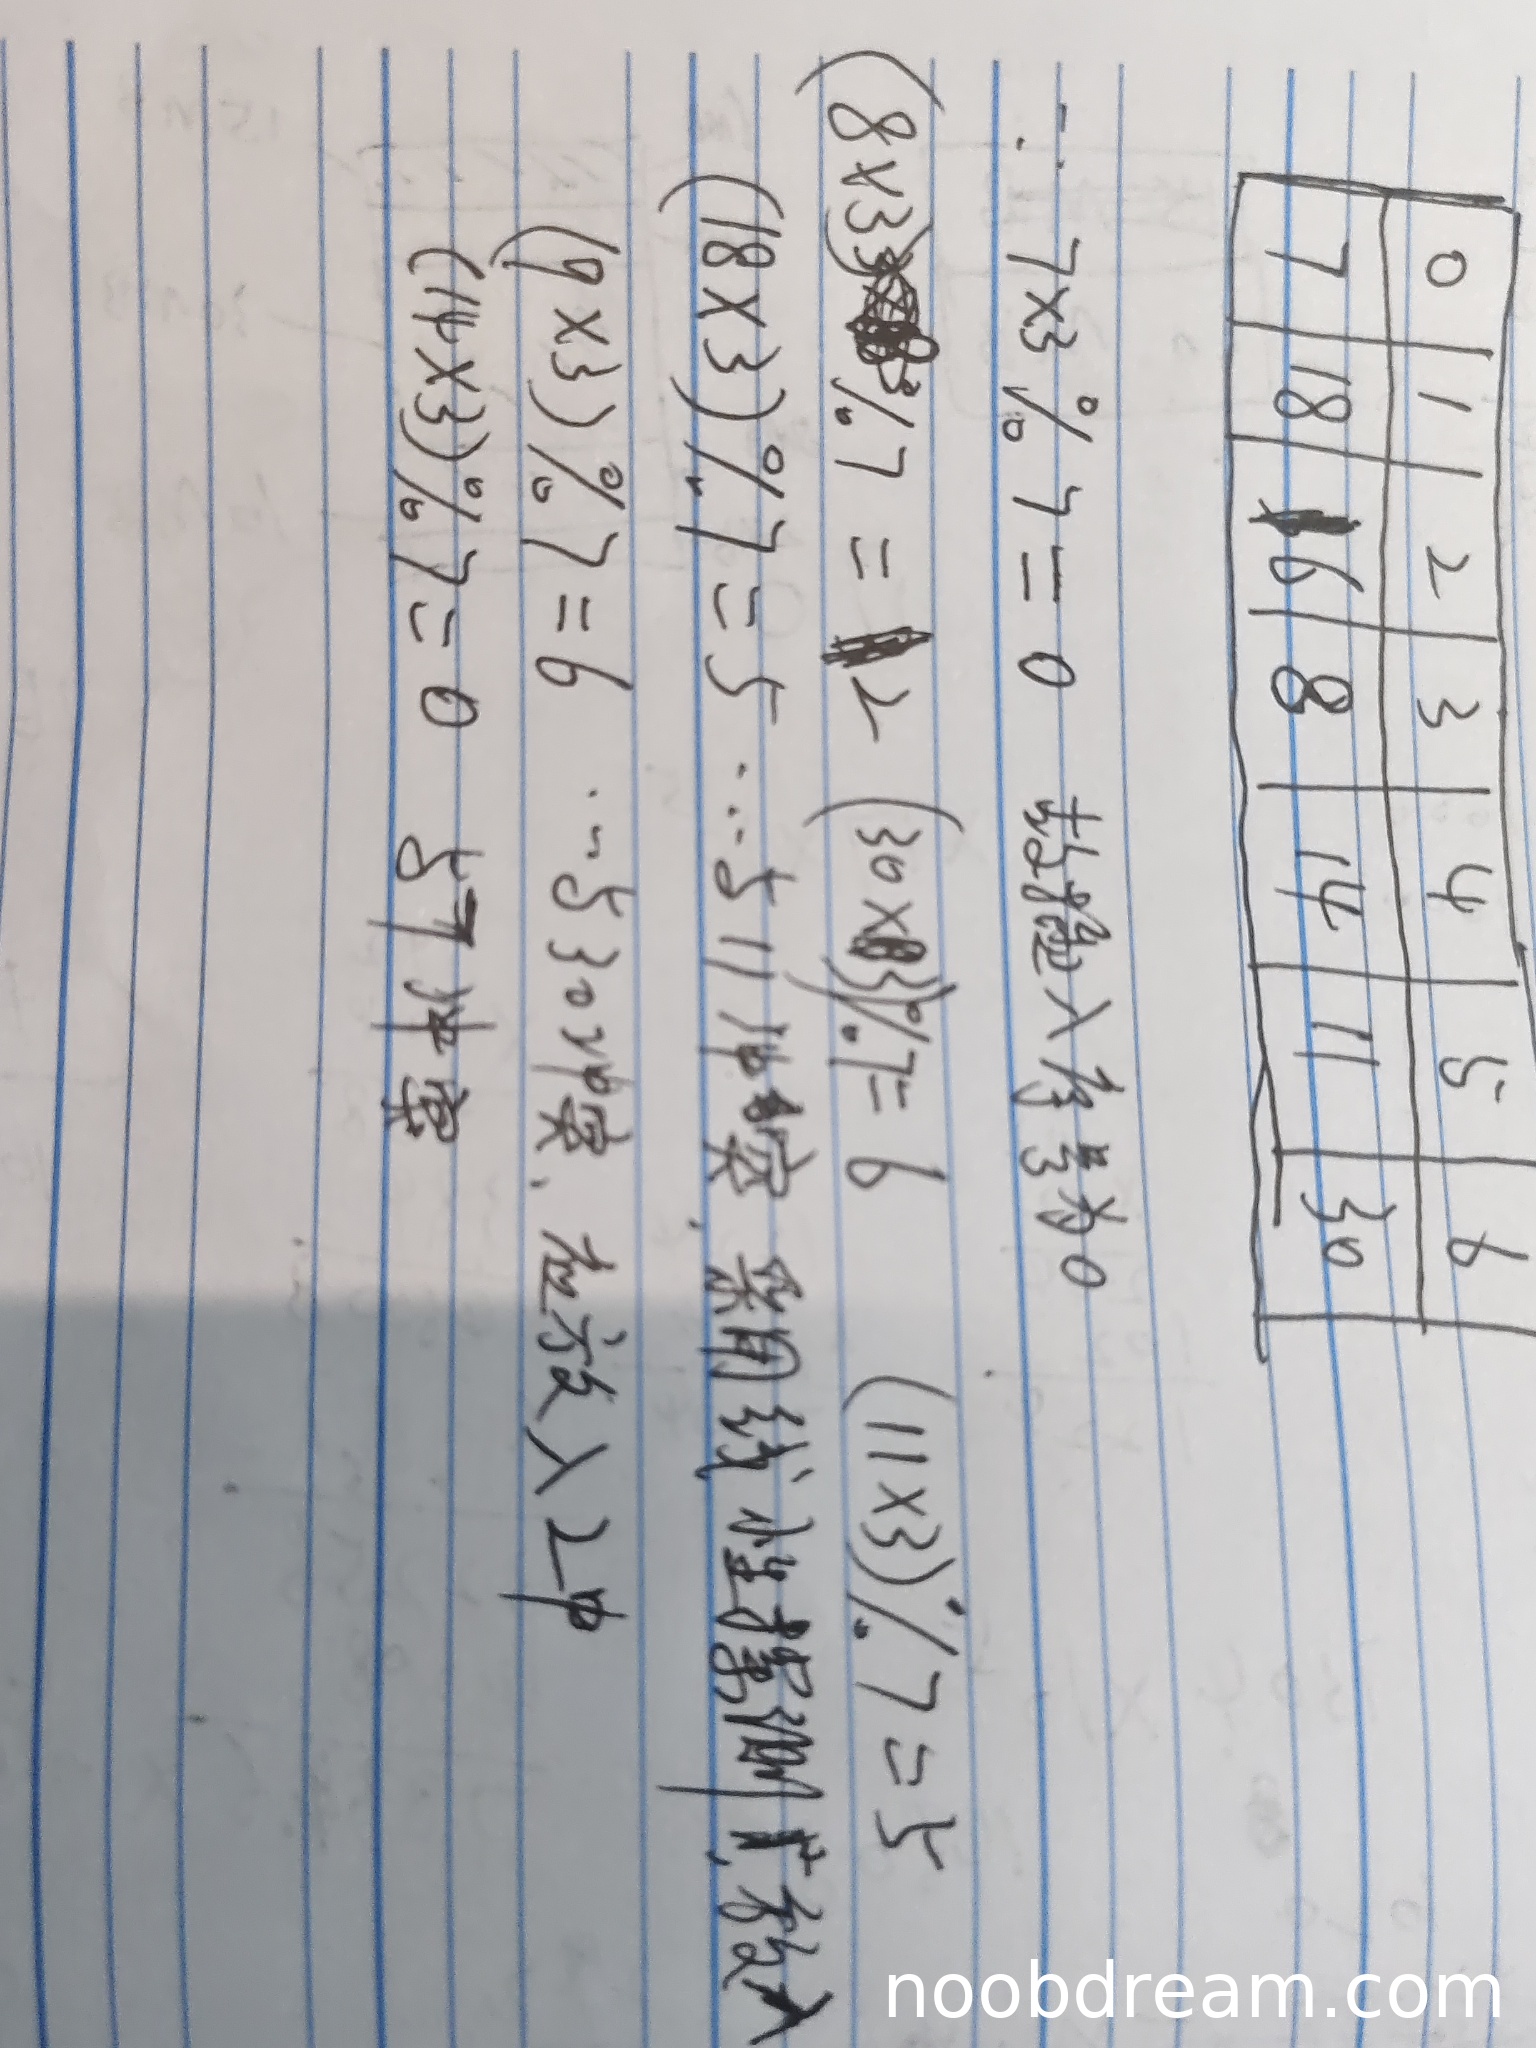 0 1 2 3 4 5 6
7 18 6 8 14 11 30
∵ 7×3%7=0 故放入序号为0
(8×3)%7=2 (30×3)%7=6 (11×3)%7=5
(18×3)%7=5 ∵与11冲突, 采用线性探测, 放入
(9×3)%7=6 ∵与30冲突, 应放入2中
(14×3)%7=0 与7冲突
noobdream.com